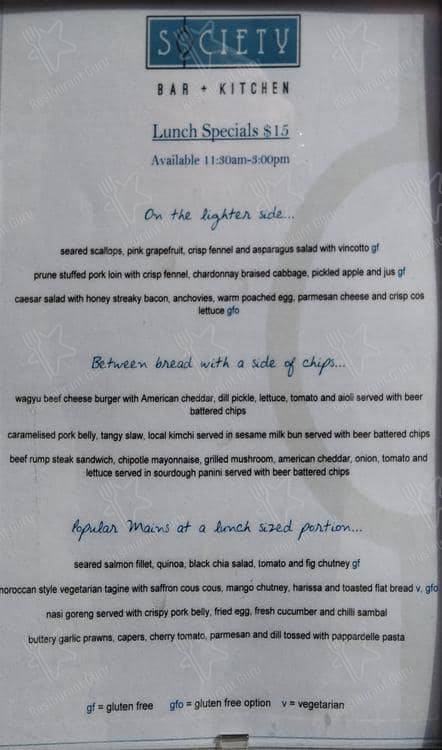 SOCIETY
BAR + KITCHEN
Lunch Specials $15
Available 11:30am-3:00pm
On the lighter side...
seared scallops, pink grapefruit, crisp fennel and asparagus salad with vincotto gf
prune stuffed pork loin with crisp fennel, chardonnay braised cabbage, pickled apple and jus gf
caesar salad with honey streaky bacon, anchovies, warm poached egg, parmesan cheese and crisp cos
lettuce gfo
Between bread with a side of chips...
wagyu beef cheese burger with American cheddar, dill pickle, lettuce, tomato and aioli served with beer
battered chips
caramelised pork belly, tangy slaw, local kimchi served in sesame milk bun served with beer battered chips
beef rump steak sandwich, chipotle mayonnaise, grilled mushroom, american cheddar, onion, tomato and
lettuce served in sourdough panini served with beer battered chips
Popular Mains at a lunch sized portion...
seared salmon fillet, quinoa, black chia salad, tomato and fig chutney gf
noroccan style vegetarian tagine with saffron cous cous, mango chutney, harissa and toasted flat bread v, gfo
nasi goreng served with crispy pork belly, fried egg, fresh cucumber and chilli sambal
buttery garlic prawns, capers, cherry tomato, parmesan and dill tossed with pappardelle pasta
gf = gluten free gfo = gluten free option v = vegetarian